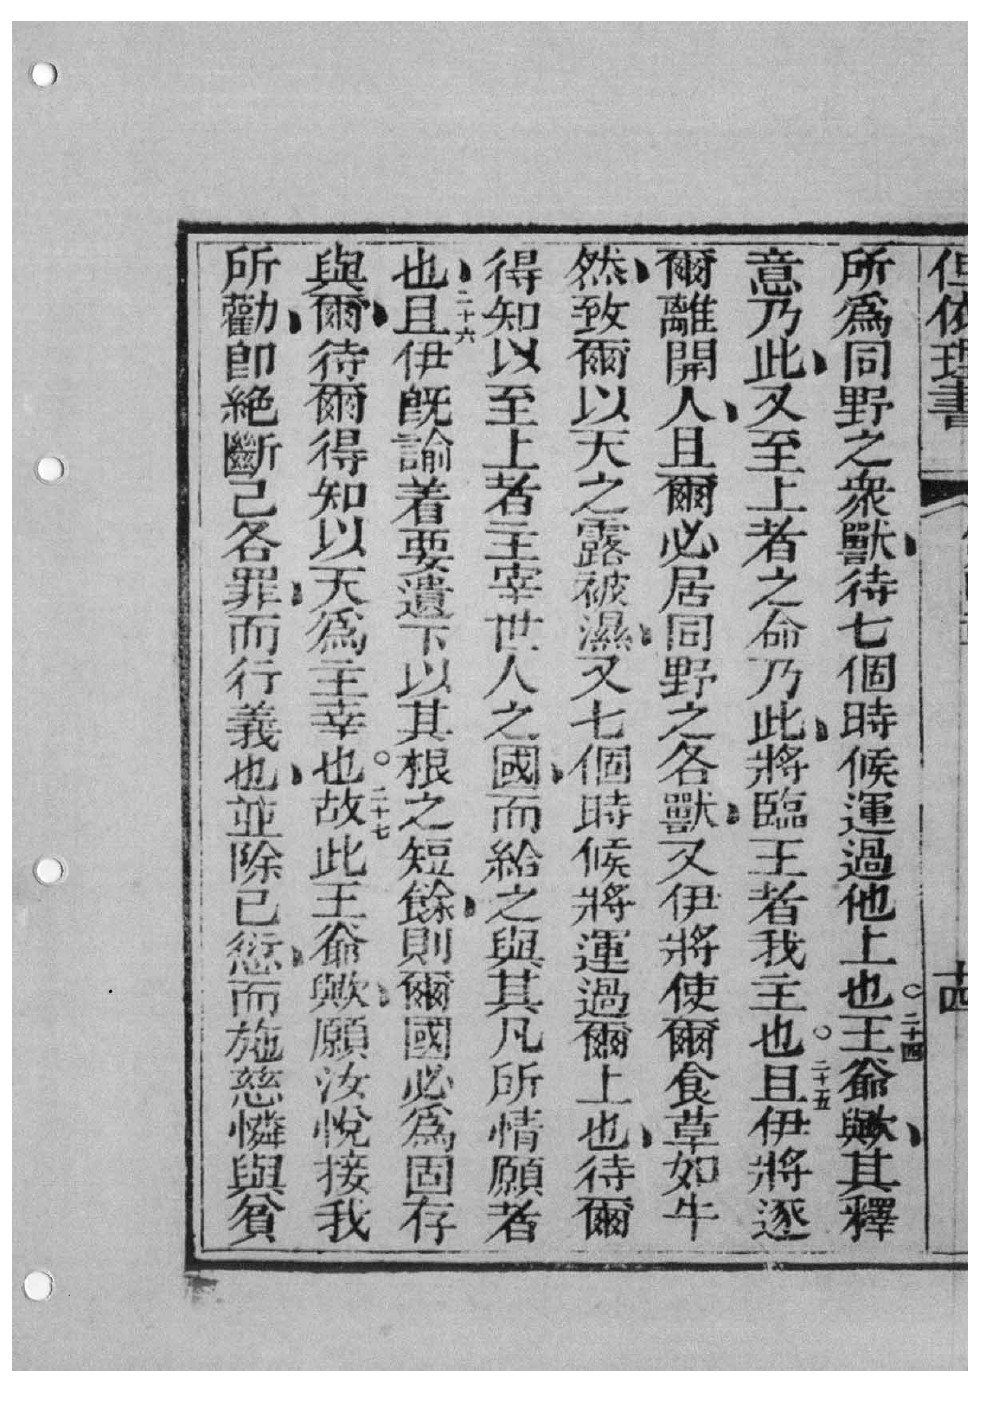 但依理書 十四
所為同野之衆獸、待七個時候運過他上也○二十四王爺歟、其釋
意乃此、又至上者之命乃此、將臨王者我主也○二十五且伊將逐
爾離開人、且爾必居同野之各獸、又伊將使爾食草如牛
然、致爾以天之露被濕、又七個時候將運過爾上也、待爾
得知以至上者主宰世人之國、而給之與其凡所情願者
也、二十六且伊既諭着要遺下以其根之短餘、則爾國必為固存
與爾、待爾得知以天為主幸也○二十七故此王爺歟、願汝悅接我
所勸、即絶斷己各罪、而行義也、並除己愆、而施慈憐與貧